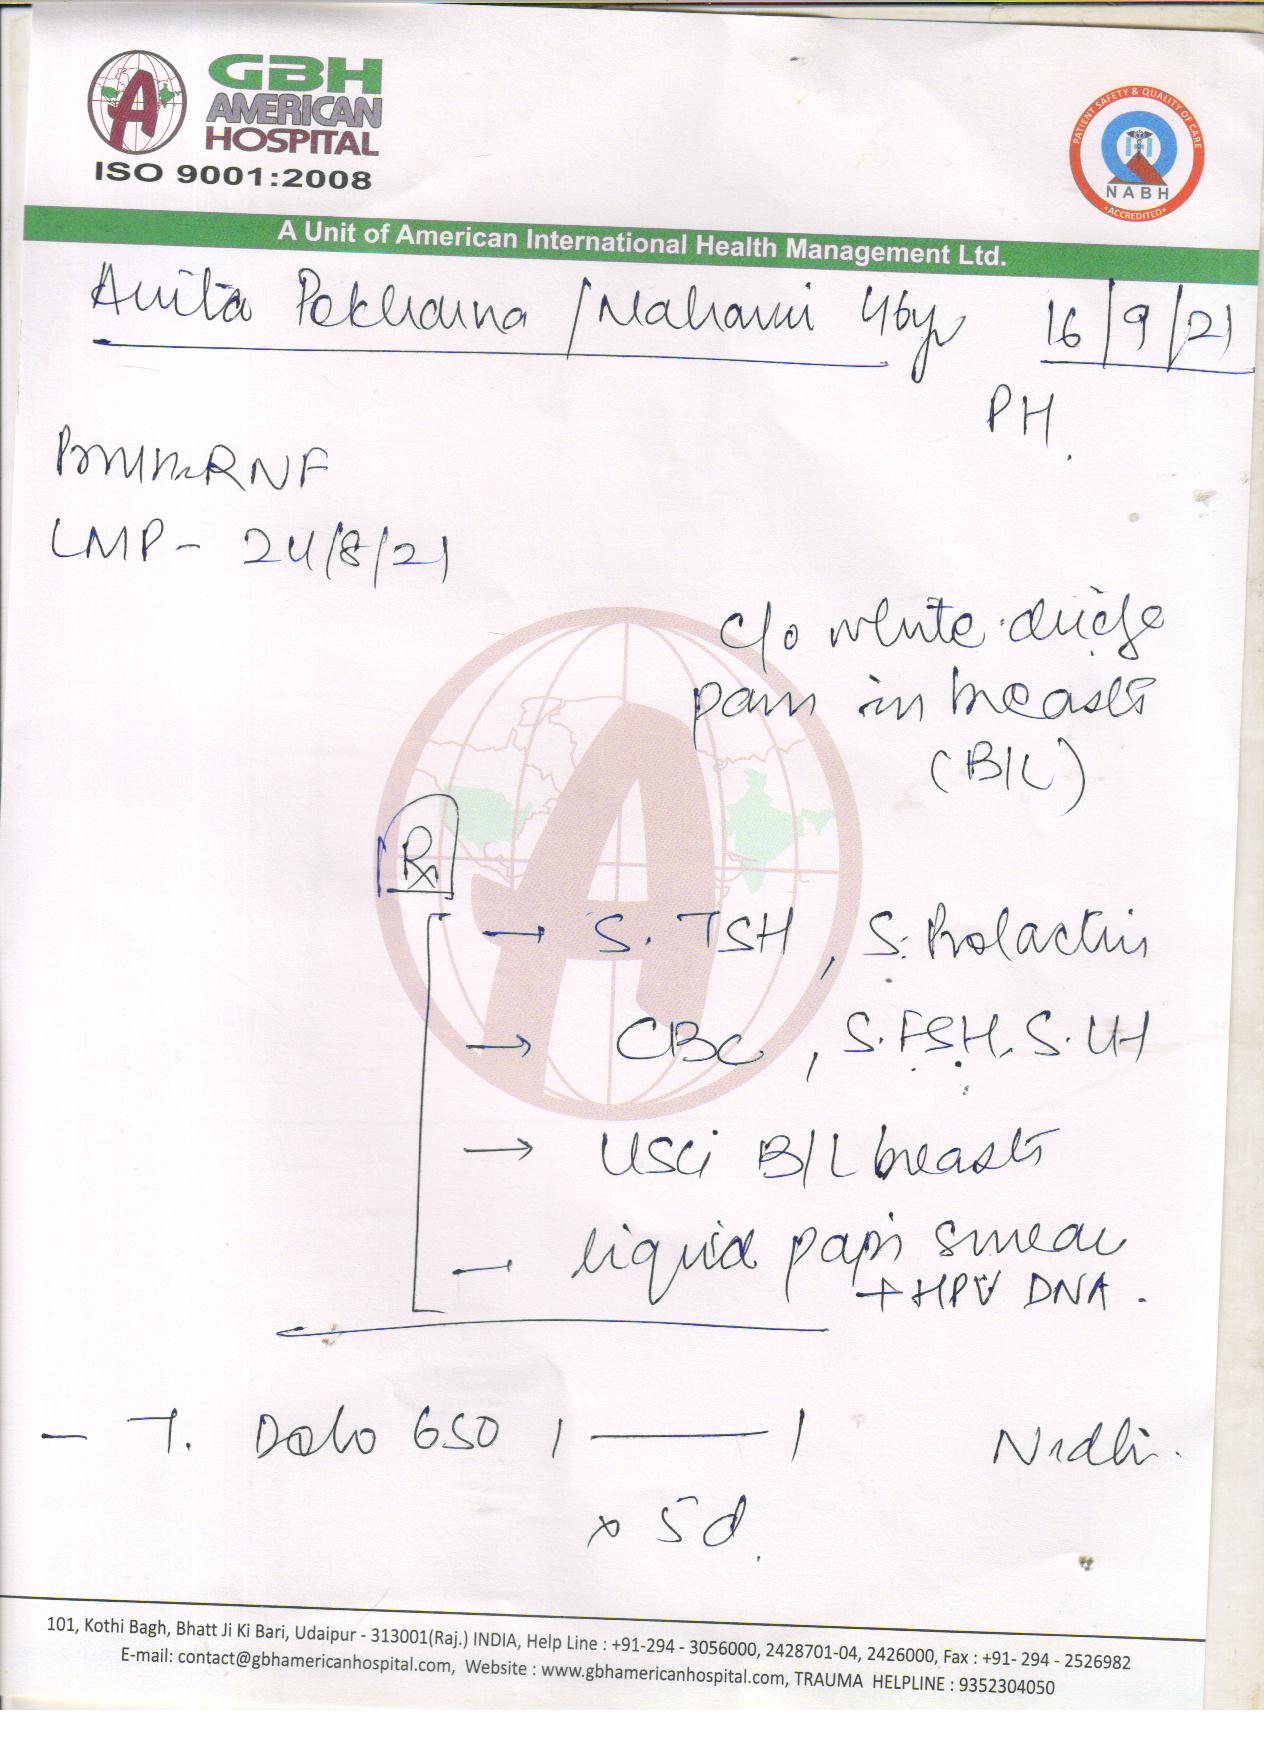 GBH
AMERICAN
HOSPITAL
ISO 9001:2008
PATIENT SAFETY & QUALITY OF CARE
NABH
ACCREDITED
A Unit of American International Health Management Ltd.
Anita 46yr 16/9/21
PH.
RNF
LMP - 24/8/21
c/o white
pain in breasts
(B/L)
Rx
→ S. TSH, S. Prolactin
→ CBC, S. FSH, S. LH
→ USG B/L breasts
- liquid pap's smear
+ HPV DNA.
- T. Dolo 650 1 — 1 Nidhi.
x 5d.
101, Kothi Bagh, Bhatt Ji Ki Bari, Udaipur - 313001(Raj.) INDIA, Help Line : +91-294 - 3056000, 2428701-04, 2426000, Fax : +91- 294 - 2526982
E-mail: contact@gbhamericanhospital.com, Website : www.gbhamericanhospital.com, TRAUMA HELPLINE : 9352304050